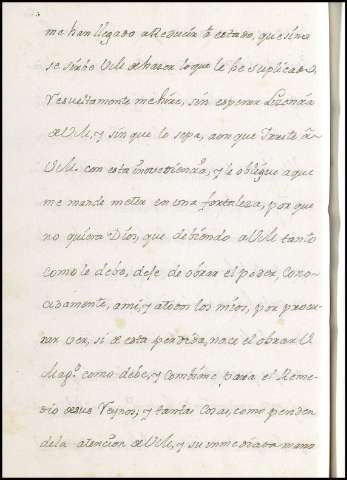 me han llegado a Reducir a estado, que sino
se sirbe V.M. de hacer lo que le he suplicado,
Resueltamente me hire, sin esperar Lizencia
de V.M. y sin que lo sepa, aon que Irrite a
V.M. con esta inovediencia, y le obligue a que
me mande meter en una fortaleza, por que
no quiera Dios, que debiendo a V.M. tanto
como le debo, dexe de obrar el poder, cono-
cidamente, a mi, y a todos los mios, por procu-
rar ver, si de esta perdida, nace el obrar V.
Magd. como debe, y combiene para el Reme-
dio de sus Reynos, y tantas cosas, como penden
de la atencion de V.M. y su immediata mano